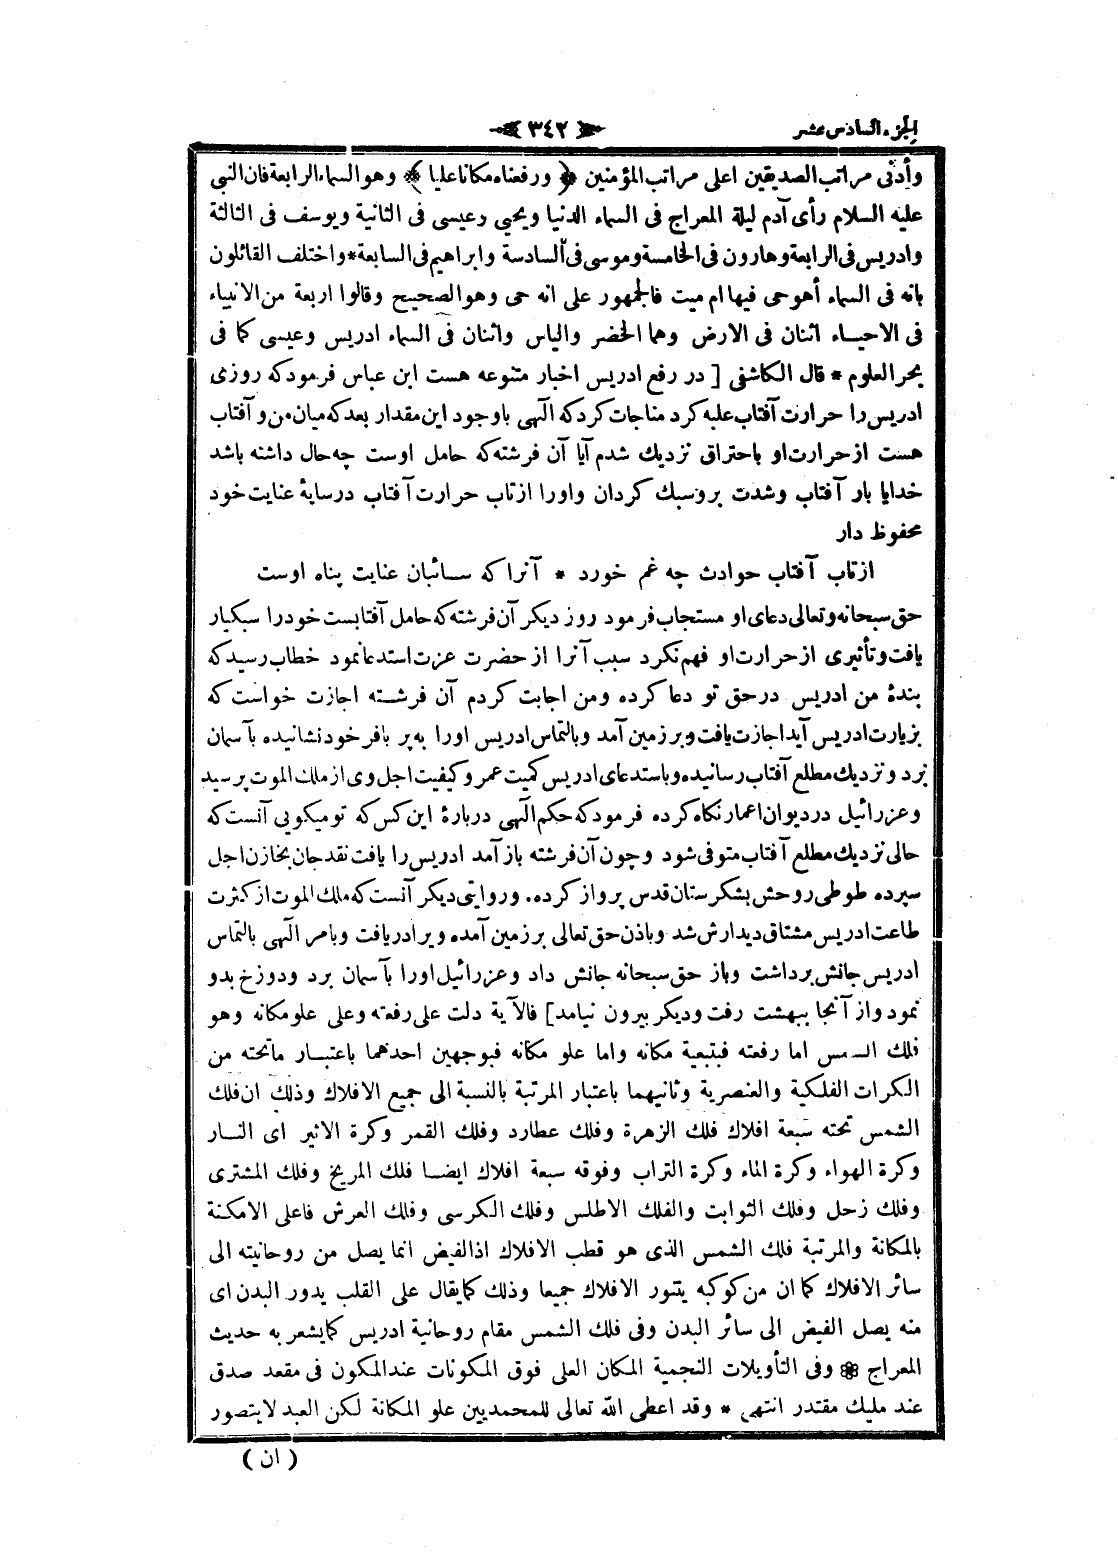 الجزء السادس عشر
﴿ ٣٤٢ ﴾
وأدنى مراتب الصديقين اعلى مراتب المؤمنين ﴿ ورفعناه مكانا عليا ﴾ وهو السماء الرابعة فان النبى
عليه السلام رأى آدم ليلة المعراج فى السماء الدنيا ويحيى وعيسى فى الثانية ويوسف فى الثالثة
وادريس فى الرابعة وهارون فى الخامسة وموسى فى السادسة وابراهيم فى السابعة * واختلف القائلون
بانه فى السماء أهو حى فيها ام ميت فالجمهور على انه حى وهو الصحيح وقالوا اربعة من الانبياء
فى الاحياء اثنان فى الارض وهما الخضر والياس واثنان فى السماء ادريس وعيسى كما فى
بحر العلوم * قال الكاشفى [ در رفع ادريس اخبار متنوعه هست ابن عباس فرمودكه روزى
ادريس را حرارت آفتاب غلبه كرد مناجات كردكه الٓهى باوجود اين مقدار بعد كه ميان من و آفتاب
هست از حرارت او باحتراق نزديك شدم آيا آن فرشته كه حامل اوست چه حال داشته باشد
خدايا بار آفتاب وشدت بروسبك كردان واورا ازتاب حرارت آفتاب درسايهٔ عنايت خود
محفوظ دار
ازتاب آفتاب حوادث چه غم خورد * آنراكه سائبان عنايت پناه اوست
حق سبحانه وتعالى دعاى او مستجاب فرمود روز ديكر آن فرشته كه حامل آفتابست خودرا سبكبار
يافت وتأثيرى از حرارت او فهم نكرد سبب آنرا از حضرت عزت استدعا نمود خطاب رسيد كه
بندهٔ من ادريس درحق تو دعا كرده ومن اجابت كردم آن فرشته اجازت خواست كه
بزيارت ادريس آيد اجازت يافت وبرزمين آمد وبالتماس ادريس اورا به پر بافر خود نشانيده بآسمان
برد ونزديك مطلع آفتاب رسانيده وباستدعاى ادريس كميت عمر وكيفيت اجل وى از ملك الموت پرسيد
وعزرائيل درديوان اعمار نكاه كرده فرمود كه حكم الٓهى دربارهٔ اين كس كه توميكويى آنست كه
حالى نزديك مطلع آفتاب متوفى شود وچون آن فرشته باز آمد ادريس را يافت نقد جان بخازن اجل
سپرده طوطى روحش بشكرستان قدس پرواز كرده. وروايتى ديكر آنست كه ملك الموت از كثرت
طاعت ادريس مشتاق ديدارش شد وباذن حق تعالى برزمين آمده ويرا دريافت وبامر الٓهى بالتماس
ادريس جانش برداشت وباز حق سبحانه جانش داد وعزرائيل اورا بآسمان برد ودوزخ بدو
نمود واز آنجا ببهشت رفت وديكر بيرون نيامد ] فالآية دلت على رفعته وعلى علو مكانه وهو
فلك الشمس اما رفعته فبتبعية مكانه واما علو مكانه فبوجهين احدهما باعتبار ماتحته من
الكرات الفلكية والعنصرية وثانيهما باعتبار المرتبة بالنسبة الى جميع الافلاك وذلك ان فلك
الشمس تحته سبعة افلاك فلك الزهرة وفلك عطارد وفلك القمر وكرة الاثير اى النار
وكرة الهواء وكرة الماء وكرة التراب وفوقه سبعة افلاك ايضا فلك المريخ وفلك المشترى
وفلك زحل وفلك الثوابت والفلك الاطلس وفلك الكرسى وفلك العرش فاعلى الامكنة
بالمكانة والمرتبة فلك الشمس الذى هو قطب الافلاك اذالفيض انما يصل من روحانيته الى
سائر الافلاك كما ان من كوكبه يتنور الافلاك جميعا وذلك كمايقال على القلب يدور البدن اى
منه يصل الفيض الى سائر البدن وفى فلك الشمس مقام روحانية ادريس كمايشعر به حديث
المعراج ❁ وفى التأويلات النجمية المكان العلى فوق المكونات عندالمكون فى مقعد صدق
عند مليك مقتدر انتهى * وقد اعطى الله تعالى للمحمديين علو المكانة لكن العبد لايتصور
( ان )